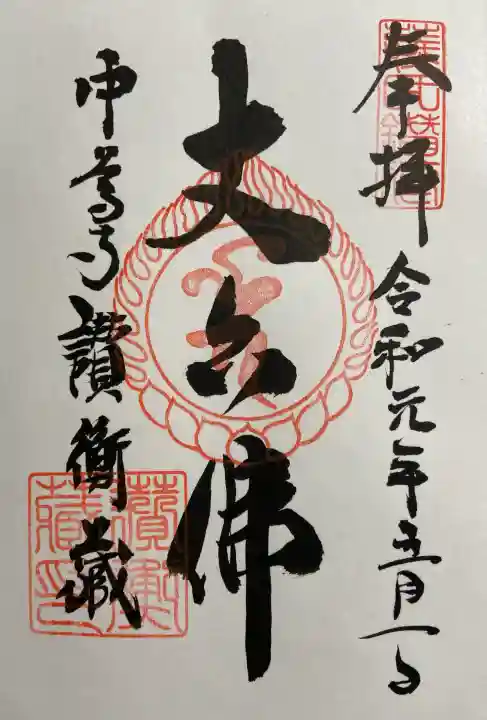 奉拝
令和元年五月一日
丈六佛
中尊寺 讃衡蔵
讃衡蔵印